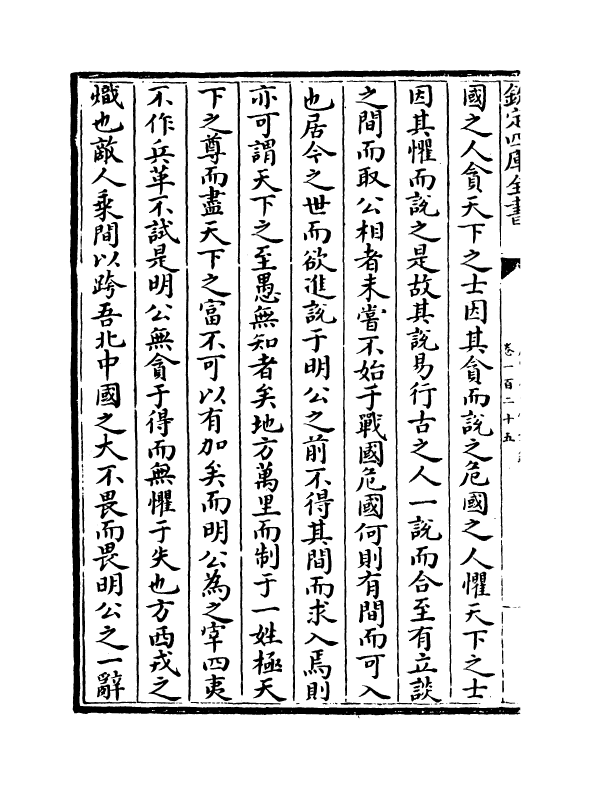 欽定四庫全書
卷一百二十五
國之人貪天下之士因其貪而說之危國之人懼天下之士
因其懼而說之是故其說易行古之人一說而合至有立談
之間而取公相者未嘗不始于戰國危國何則有間而可入
也居今之世而欲進說于明公之前不得其間而求入焉則
亦可謂天下之至愚無知者矣地方萬里而制于一姓極天
下之尊而盡天下之富不可以有加矣而明公為之宰四夷
不作兵革不試是明公無貪于得而無懼于失也方西戎之
熾也敵人乘間以跨吾北中國之大不畏而畏明公之一辭